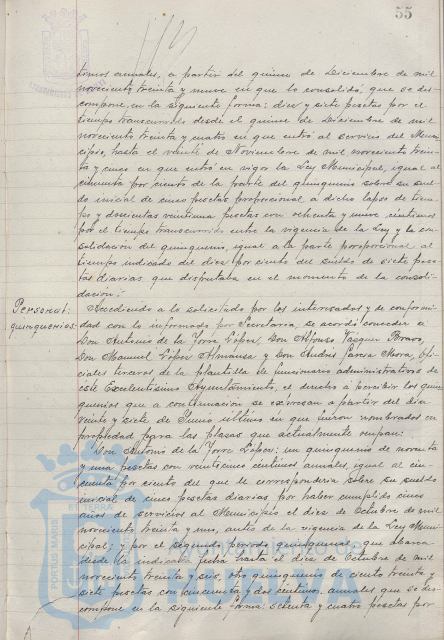 55
timos anuales, a partir del quince de Diciembre de mil
novecientos treinta y nueve en que lo consolidó, que se des-
compone en la siguiente forma: diez y siete pesetas por el
tiempo transcurrido desde el quince de Diciembre de mil
novecientos treinta y cuatro en que entró al servicio del Muni-
cipio, hasta el veinte de Noviembre de mil novecientos trein-
ta y cinco en que entró en vigor la Ley Municipal, igual al
cincuenta por ciento de la parte del quinquenio sobre su suel-
do inicial de cinco pesetas proporcional a dicho lapso de tiem-
po y doscientas veintiuna pesetas con ochenta y nueve céntimos
por el tiempo transcurrido entre la vigencia de la Ley y la con-
solidación del quinquenio, igual a la parte proporcional al
tiempo indicado del diez por ciento del sueldo de siete pese-
tas diarias que disfrutaba en el momento de la consoli-
dación.
Personal:
quinquenios.
Accediendo a lo solicitado por los interesados y de conformi-
dad con lo informado por Secretaría, se acordó conceder a
Don Antonio de la Torre López, Don Alfonso Vázquez Bravo,
Don Manuel López Almansa y Don Andrés García Mora, Ofi-
ciales terceros de la plantilla de funcionarios administrativos de
este Excelentísimo Ayuntamiento, el derecho a percibir los quin-
quenios que a continuación se expresan a partir del día
veinte y siete de Junio último en que fueron nombrados en
propiedad para las plazas que actualmente ocupan:
Don Antonio de la Torre López: un quinquenio de noventa
y una pesetas con veinticinco céntimos anuales, igual al cin-
cuenta por ciento del que le correspondería sobre su sueldo
inicial de cinco pesetas diarias por haber cumplido cinco
años de servicios al Municipio el diez de Octubre de mil
novecientos treinta y uno, antes de la vigencia de la Ley Muni-
cipal; y por el segundo período quinquenal, que abarca
desde la indicada fecha hasta el diez de Octubre de mil
novecientos treinta y seis, otro quinquenio de ciento treinta y
siete pesetas con cincuenta y dos céntimos anuales que se des-
compone en la siguiente forma: setenta y cuatro pesetas por
PORTUS MAGNUS
Ayuntamiento de